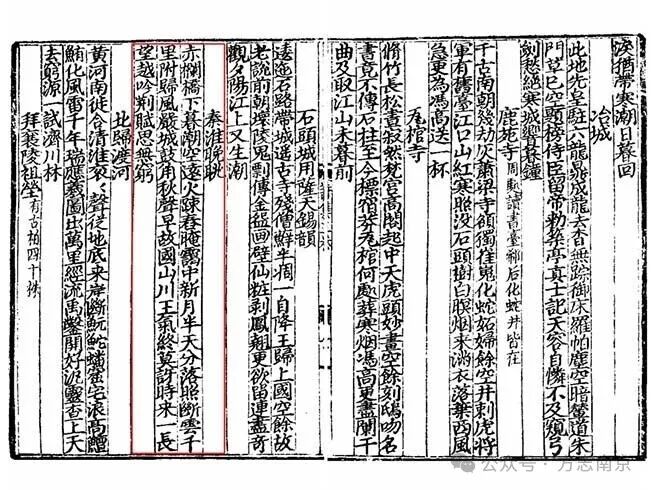 淚猶帶寒潮日暮回
冶城
此地先皇駐六龍飛成龍去杳無蹤御床羅帕塵空暗道朱
門草已空顯榜侍臣留帝勅築亭真士記天容自憐不及窺弓
劍愁絕寒城響暮鐘
鹿苑寺 周顒讀書臺郗后化蛇井皆在
千古南朝幾劫灰蕭梁寺額獨崔嵬化蛇妬婦餘空井刺虎將
軍有舊臺江口山紅寒照沒石頭樹白暝烟来滿衣落葉西風
急更為馮高送一杯
瓦棺寺
將竹長松晝寂然梵宮高閣起中天虎頭妙畫空餘刻鴟吻名
書竟不傳石柱至今標宿莽瓦棺何處葬寒烟馮高更盡闌干
曲及取江山未暮前
石頭城用薩天錫韻
石路帶城遥古寺殘僧鮮半凋一自降王歸上國空餘故
老說前朝陵鬼剽傳金盌回壁仙粧剥鳳翹更欲留連盡奇
觀夕陽江上又生潮
秦淮晚眺
赤欄橋下暮潮空遠火疎舂晻靄中新月半天分落照斷雲千
里附歸風嚴城鼓角秋聲早故國山川王氣終莫訝時來一長
望越吟荆賦思無窮
北歸渡河
黃河南徙合清淮袞袞聲從地底来岸宅浪高鱣
鮪化風雷千年瑞應羲圖出萬里經流禹鑿開好泛靈查上天
去窮源一試濟川材
拜襄陵祖塋 有古柏四十株
公众号 · 方志南京